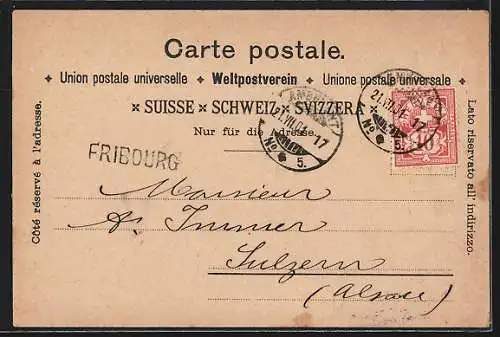 Carte postale.
Union postale universelle ✦ Weltpostverein ✦ Unione postale universale
SUISSE × SCHWEIZ × SVIZZERA
Nur für die Adresse.
Côté réservé à l'adresse.
Lato riservato all' indirizzo.
FRIBOURG
No 5.
17
No 5.
17
10
Monsieur
A. Immer
Sulzern
(Alsace)